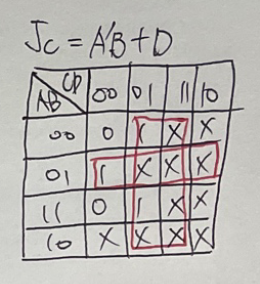 Jc = A'B + D
AB CD 00 01 11 10
00 0 1 X X
01 1 X X X
11 0 1 X X
10 X X X X